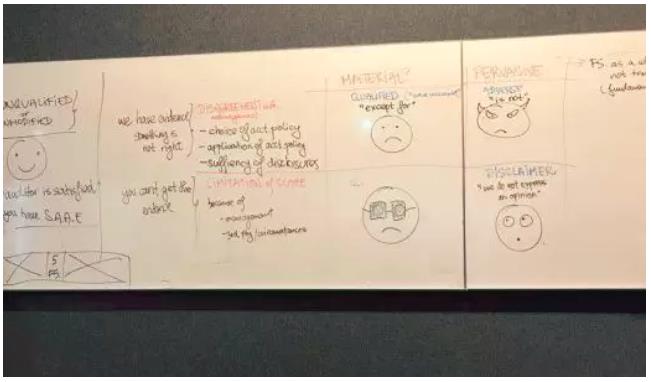 UNQUALIFIED/
or
UNMODIFIED
auditor is satisfied
you have S.A.A.E
5
FS
we have evidence
something is
not right
DISAGREEMENT w.
- choice of acct policy
- application of acct policy
- suffiency of disclosures
you can't get the
evidence
LIMITATION of SCOPE
because of
- management
- 3rd pty/circumstances
MATERIAL?
QUALIFIED
"except for"
PERVASIVE
ADVERSE
"is not"
DISCLAIMER
"we do not express
an opinion"
FS. as a
not